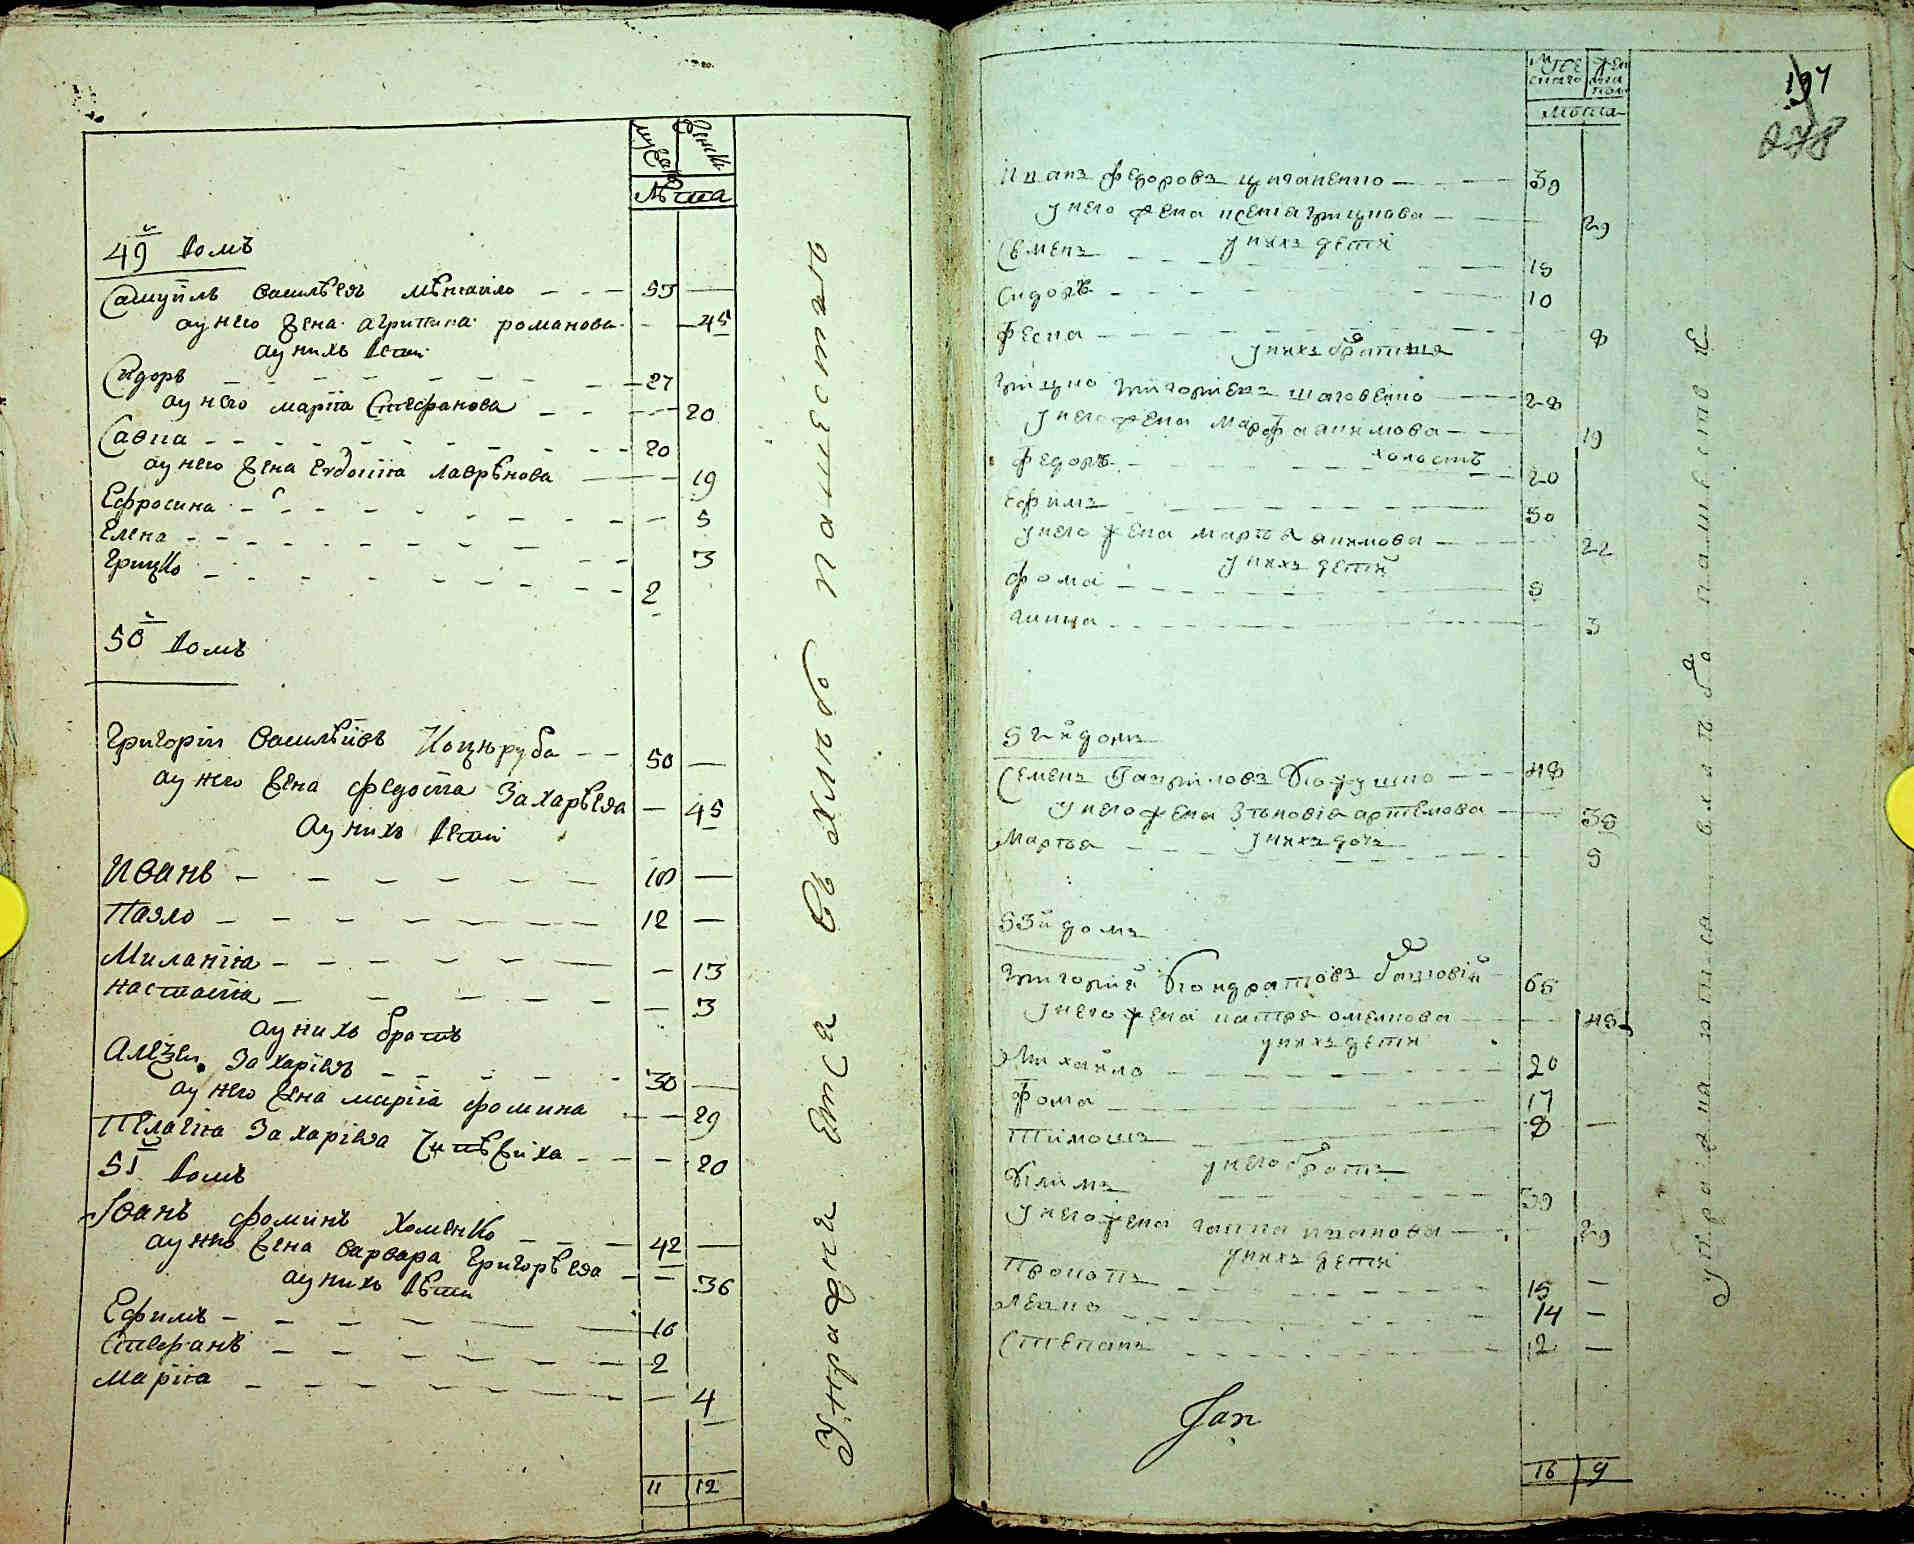 мужеска
женска
лѣта
49й домъ
Самуилъ Василѣевъ Мѣхайло 53
а у него жена агрипина романова 45
а у нихъ дети
Сидоръ 27
а у него марѣіа Стефанова 20
Савка 20
а у него жена Евдокііа лаврѣнова 19
Ефросина 5
Елена 3
Грицко 2
50й домъ
Григорій Василѣіовъ Коцюруба 50
а у него жена федосіа Захарѣева 45
а у нихъ дети
Иванъ 18
Павло 12
Миланііа 13
настасіа 3
а у нихъ братъ
Алеѯей Захаріевъ 30
а у него жена марііа фомина 29
Пелагііа Захаріева 20
51й домъ
Іванъ фоминъ хоменко 42
а у него жена варвара Григорѣева 36
а у нихъ дѣти
Ефимъ 10
Стефанъ 2
Марііа 4
11 12
мужескаго
лѣта
197
278
Иванъ Федоровъ циганенко 39
у него жена ксенія грицкова 29
у нихъ дети
Семенъ 15
Сидоръ 10
Фесна 8
у нихъ братия
Грицко Григориевъ 28
у него жена марфа якимова 19
Федоръ холостъ 20
Ефимъ 30
у него жена марфа якимова 22
у нихъ дети
Фома 5
ганна 3
52й домъ
Семенъ Гавриловъ 48
у него жена зѣновія артемова 35
у нихъ дочь
Марфа 5
53й домъ
Григорий Кондратовъ 65
у него жена омелкова 45
у нихъ дети
Михайло 20
Фома 17
Тимошъ 8
у него братъ
Климъ 39
у него жена ганна иванова 29
у нихъ дети
Прокопъ 15
левко 14
Степанъ 12
16 9